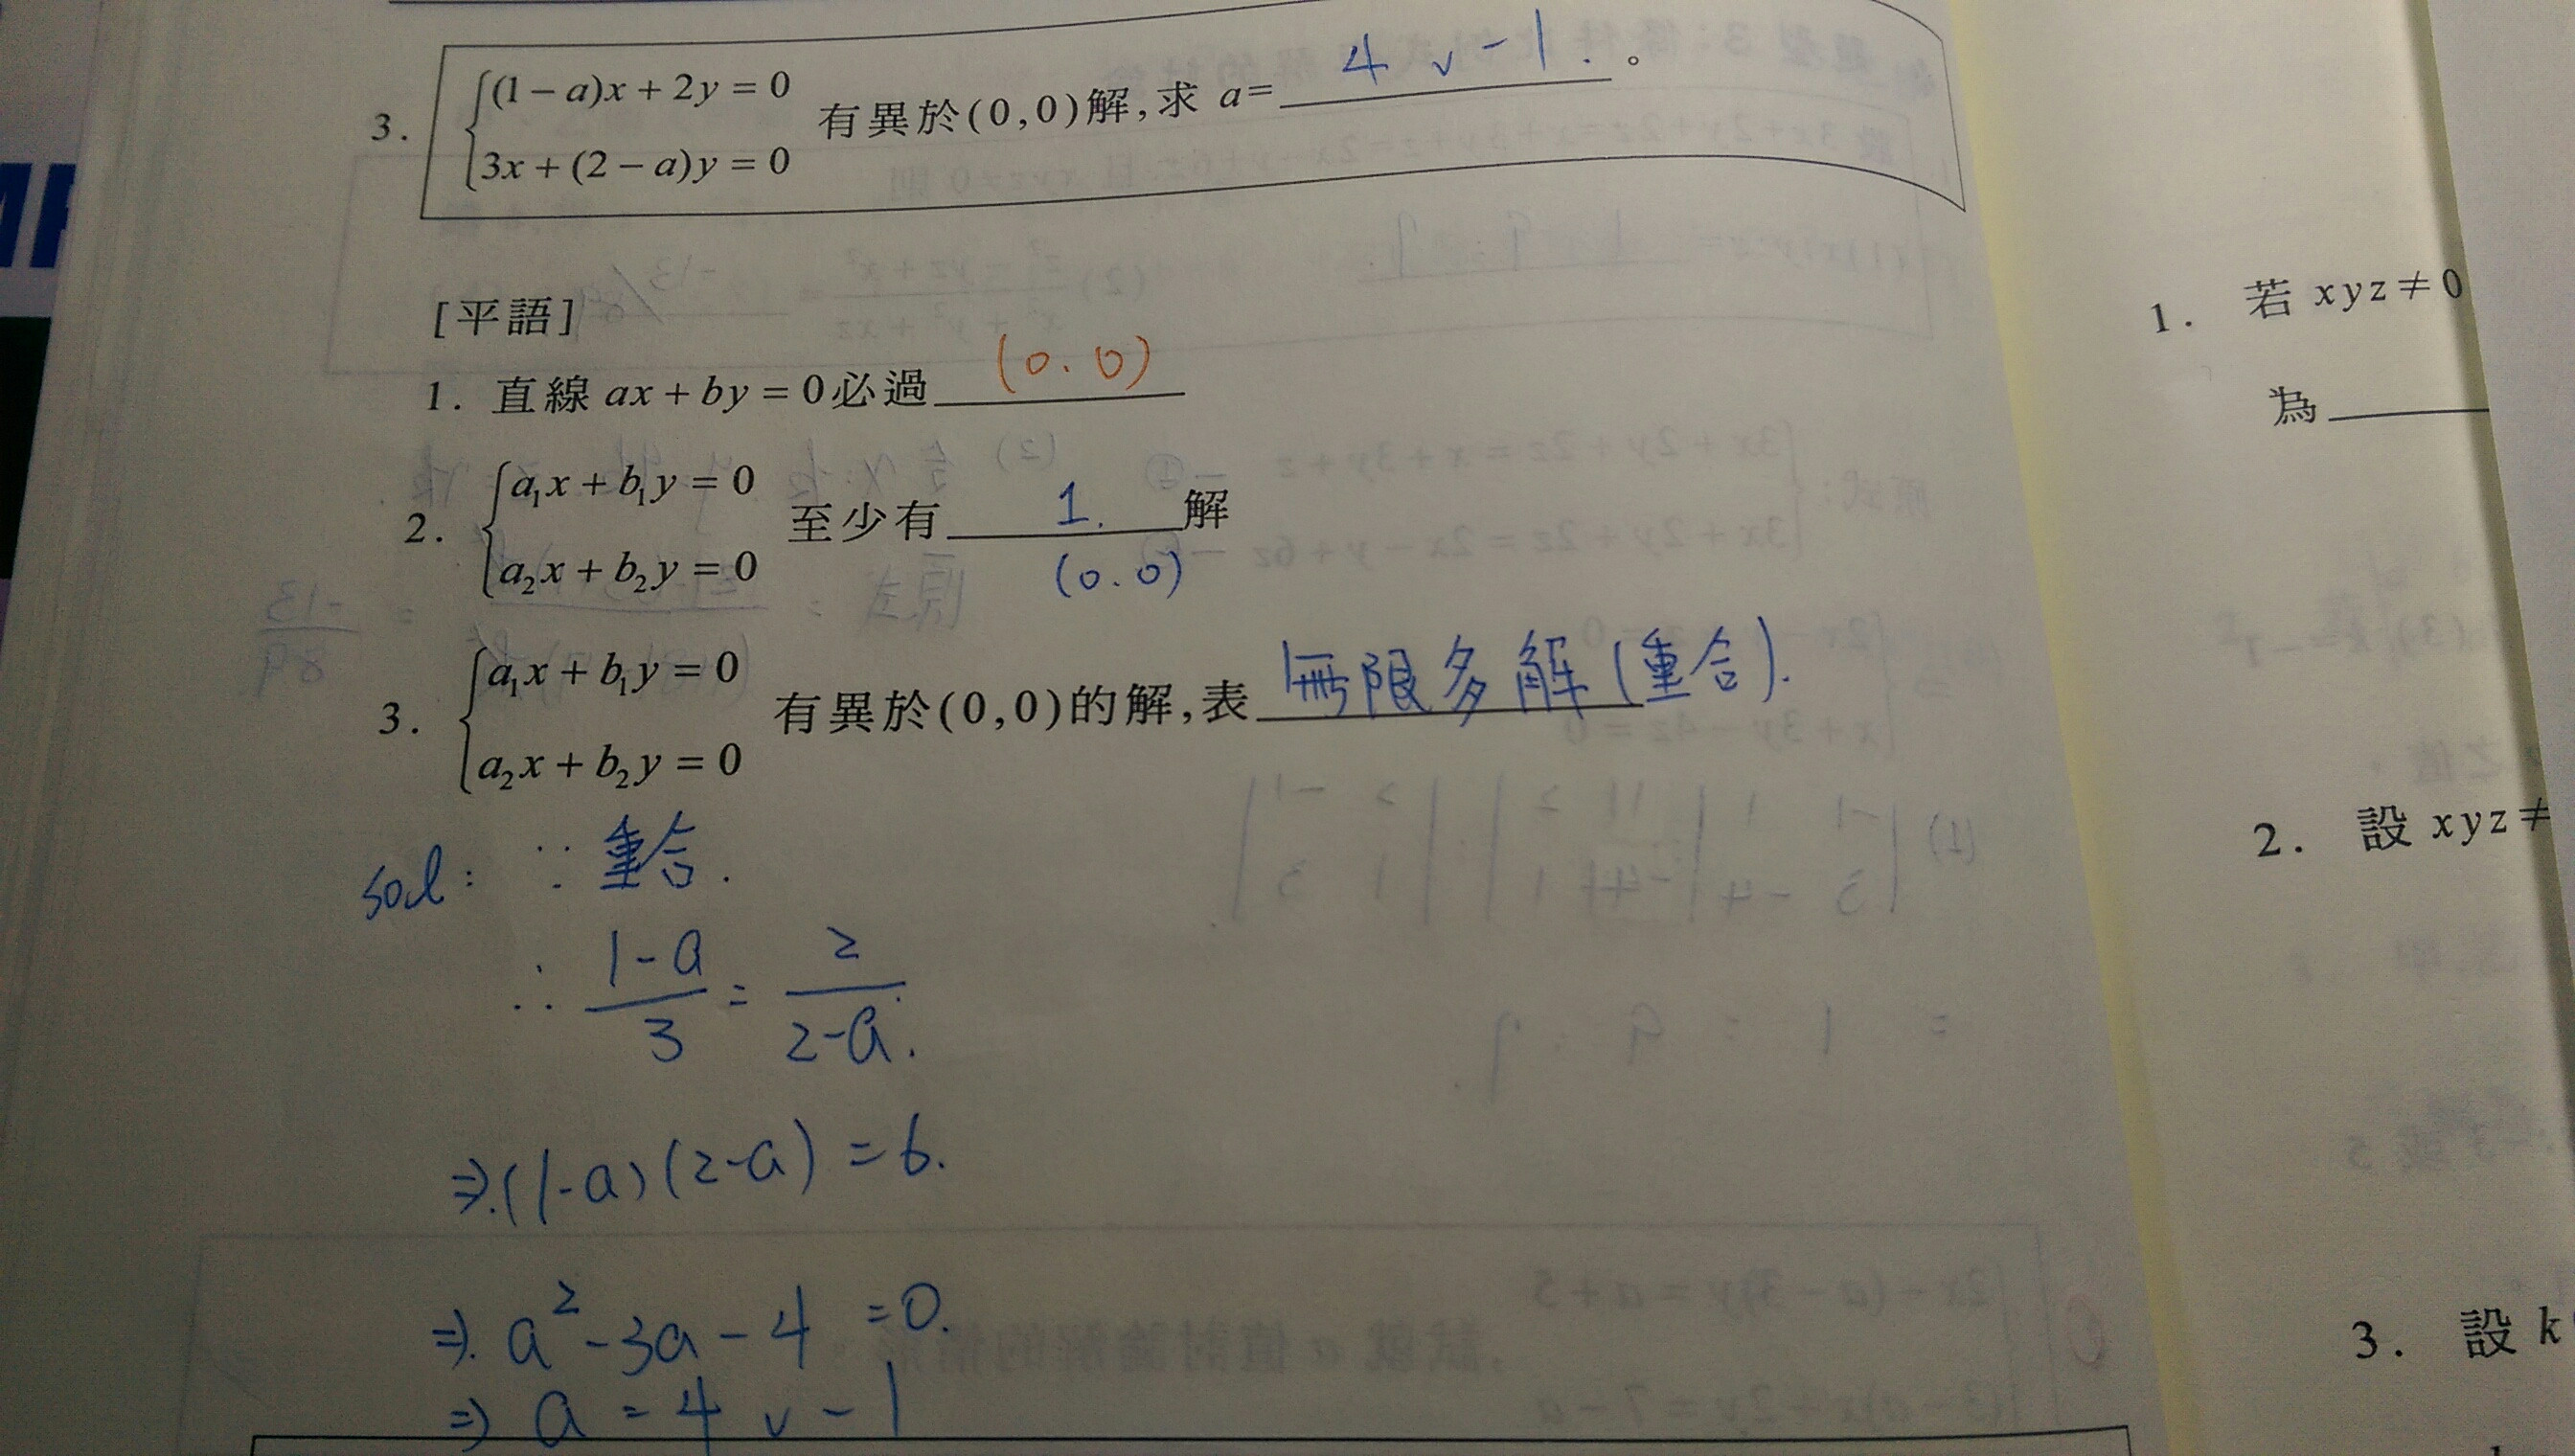 3. {(1−a)x+2y=0
3x+(2−a)y=0 有異於(0,0)解,求 a= 4 ∨ -1. 。
[平語]
1. 直線 ax+by=0必過 (0.0)
2. {a₁x+b₁y=0
a₂x+b₂y=0 至少有 1. 解
(0.0)
3. {a₁x+b₁y=0
a₂x+b₂y=0 有異於(0,0)的解,表 無限多解(重合).
sol: ∵重合.
∴ 1-a/3 = 2/2-a.
⇒.(1-a)(2-a)=6.
⇒. a²-3a-4=0.
⇒ a=4 ∨ -1
1. 若 xyz≠0
為
2. 設 xyz≠
3. 設 k